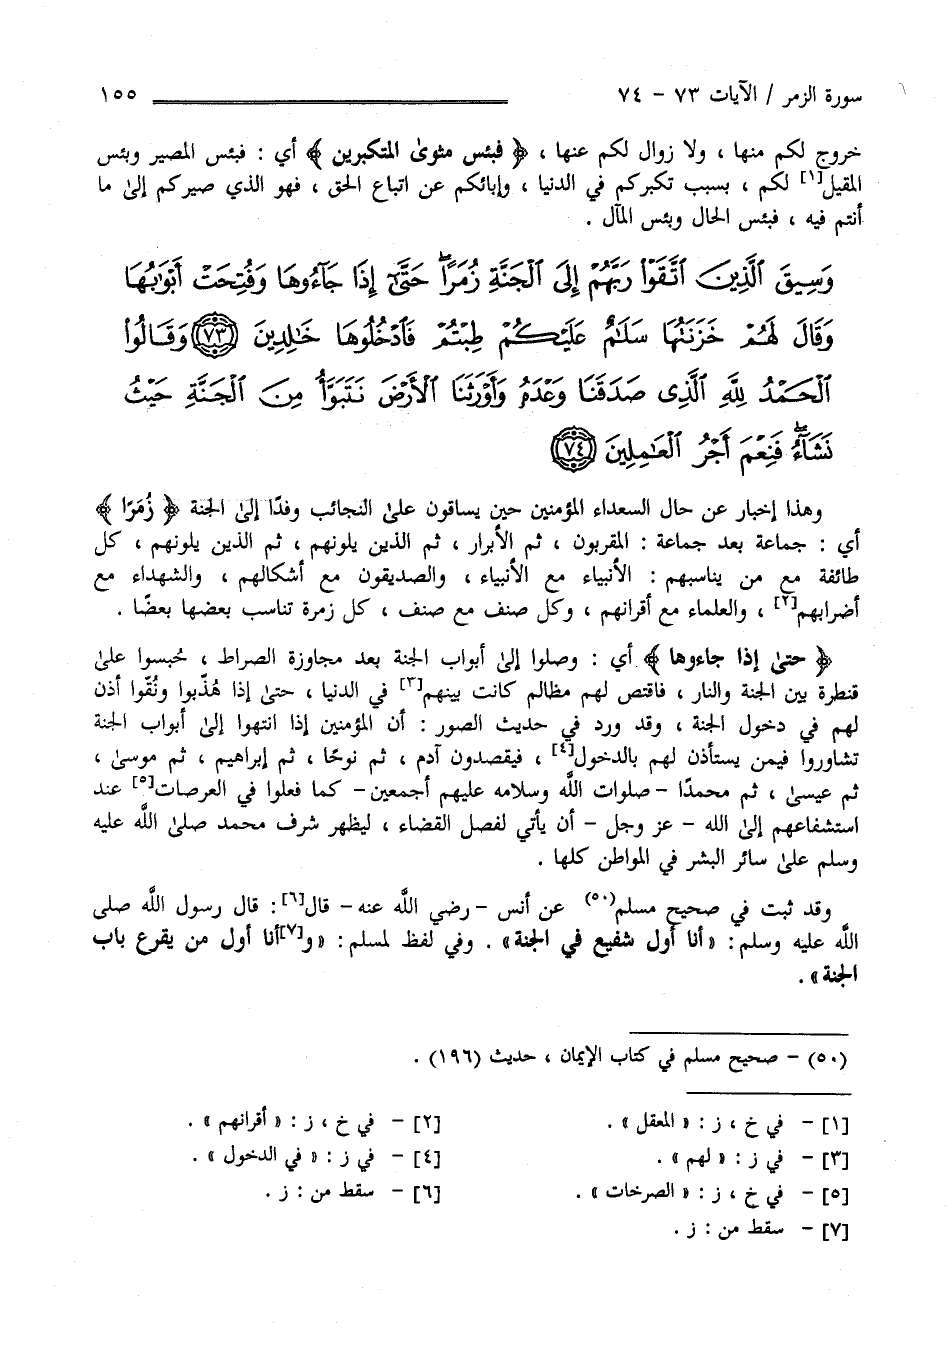 سورة الزمر / الآيات ٧٣ - ٧٤ ١٥٥
خروج لكم منها ، ولا زوال لكم عنها ، ﴿ فبئس مثوىٰ المتكبرين ﴾ أي : فبئس المصير وبئس
المقيل[١] لكم ، بسبب تكبركم في الدنيا ، وإبائكم عن اتباع الحق ، فهو الذي صيركم إلىٰ ما
أنتم فيه ، فبئس الحال وبئس المآل .
وَسِيقَ ٱلَّذِينَ ٱتَّقَوْا۟ رَبَّهُمْ إِلَى ٱلْجَنَّةِ زُمَرًا ۖ حَتَّىٰٓ إِذَا جَآءُوهَا وَفُتِحَتْ أَبْوَٰبُهَا
وَقَالَ لَهُمْ خَزَنَتُهَا سَلَٰمٌ عَلَيْكُمْ طِبْتُمْ فَٱدْخُلُوهَا خَٰلِدِينَ ﴿٧٣﴾ وَقَالُوا۟
ٱلْحَمْدُ لِلَّهِ ٱلَّذِى صَدَقَنَا وَعْدَهُۥ وَأَوْرَثَنَا ٱلْأَرْضَ نَتَبَوَّأُ مِنَ ٱلْجَنَّةِ حَيْثُ
نَشَآءُ ۖ فَنِعْمَ أَجْرُ ٱلْعَٰمِلِينَ ﴿٧٤﴾
وهذا إخبار عن حال السعداء المؤمنين حين يساقون علىٰ النجائب وفدًا إلىٰ الجنة ﴿ زُمَرًا ﴾
أي : جماعة بعد جماعة : المقربون ، ثم الأبرار ، ثم الذين يلونهم ، ثم الذين يلونهم ، كل
طائفة مع من يناسبهم : الأنبياء مع الأنبياء ، والصديقون مع أشكالهم ، والشهداء مع
أضرابهم[٢] ، والعلماء مع أقرانهم ، وكل صنف مع صنف ، كل زمرة تناسب بعضها بعضًا .
﴿ حتىٰ إذا جاءوها ﴾ أي : وصلوا إلىٰ أبواب الجنة بعد مجاوزة الصراط ، حُبسوا علىٰ
قنطرة بين الجنة والنار ، فاقتص لهم مظالم كانت بينهم[٣] في الدنيا ، حتىٰ إذا هُذّبوا ونُقّوا أذن
لهم في دخول الجنة ، وقد ورد في حديث الصور : أن المؤمنين إذا انتهوا إلىٰ أبواب الجنة
تشاوروا فيمن يستأذن لهم بالدخول[٤] ، فيقصدون آدم ، ثم نوحًا ، ثم إبراهيم ، ثم موسىٰ ،
ثم عيسىٰ ، ثم محمدًا -صلوات الله وسلامه عليهم أجمعين- كما فعلوا في العرصات[٥] عند
استشفاعهم إلىٰ الله - عز وجل - أن يأتي لفصل القضاء ، ليظهر شرف محمد صلىٰ الله عليه
وسلم علىٰ سائر البشر في المواطن كلها .
وقد ثبت في صحيح مسلم(٥٠) عن أنس -رضي الله عنه- قال[٦]: قال رسول الله صلى
الله عليه وسلم: «أنا أول شفيع في الجنة» . وفي لفظ لمسلم: «و[٧]أنا أول من يقرع باب
الجنة» .
(٥٠) - صحيح مسلم في كتاب الإيمان ، حديث (١٩٦) .
[١] - في خ ، ز : « المعقل » . [٢] - في خ ، ز : « أقرانهم » .
[٣] - في ز : « لهم » . [٤] - في ز : « في الدخول » .
[٥] - في خ ، ز : « الصرخات » . [٦] - سقط من : ز .
[٧] - سقط من : ز .